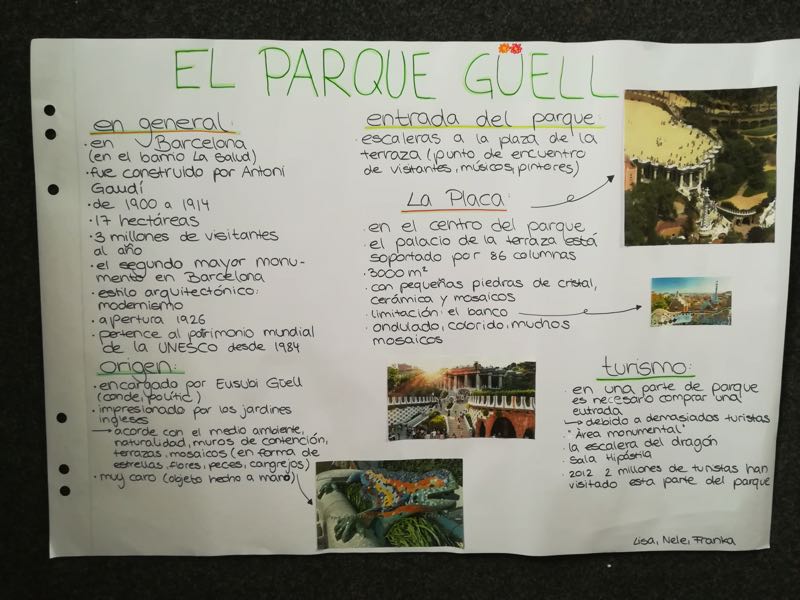 EL PARQUE GÜELL
en general:
· en Barcelona
(en el barrio La Salud)
· fue construido por Antoni
Gaudí
· de 1900 a 1914
· 17 hectáreas
· 3 millones de visitantes
al año
· el segundo mayor monu-
mento en Barcelona
· estilo arquitectónico:
modernismo
· apertura 1926
· pertence al patrimonio mundial
de la UNESCO desde 1984
origen:
· encargado por Eusubi Güell
(conde, politic)
· impresionado por los jardines
ingleses
→ acorde con el medio ambiente,
naturalidad, muros de contención,
terrazas, mosaicos (en forma de
estrellas, flores, peces, cangrejos)
· muy caro (objeto hedno a mano)
entrada del parque:
· escaleras a la plaza de la
terraza (punto de encuentro
de visitantes, músicos, pintores)
La Placa:
· en el centro del parque
· el palacio de la terraza está
soportado por 86 columnas
· 3000 m²
· con pequeñas piedras de cristal,
cerámica y mosaicos
· limitación: el banco
· ondulado, colorido, muchos
mosaicos
turismo:
· en una parte de parque
es necesario comprar una
entrada
→ debido a demasiados turistas
· "Área monumental"
· la escalera del dragón
· Sala Hipóstila
· 2012 2 millones de turistas han
visitado esta parte del parque
Lisa, Nele, Franka